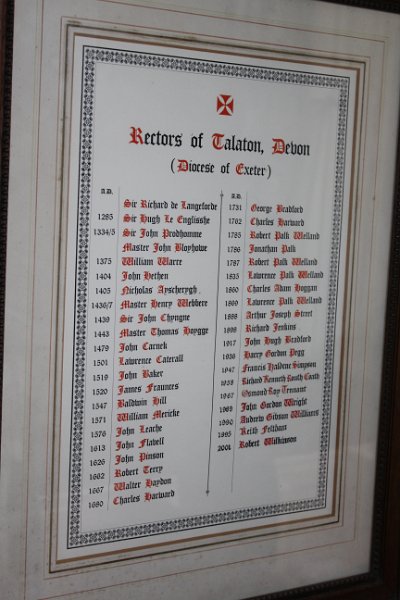 Rectors of Talaton, Devon
(Diocese of Exeter)
A.D.
Sir Richard de Langeforde
1285 Sir Hugh Le Englisshe
1334/5 Sir John Prodhomme
Master John Bloyhowe
1375 William Warre
1404 John Hethen
1405 Nicholas Ayscherygh
1436/7 Master Henry Webbere
1439 Sir John Chyngne
1443 Master Thomas Hoygge
1479 John Carnek
1501 Lawrence Caterall
1519 John Baker
1520 James Fraunces
1547 Baldwin Hill
1571 William Mericke
1576 John Leache
1613 John Flavell
1626 John Pinson
1662 Robert Terry
1667 Walter Haydon
1680 Charles Harward
A.D.
1731 George Bradford
1762 Charles Harward
1785 Robert Palk Welland
1786 Jonathan Palk
1787 Robert Palk Welland
1835 Lawrence Palk Welland
1860 Charles Adam Hoggan
1869 Lawrence Palk Welland
1898 Arthur Joseph Street
1898 Richard Jenkins
1917 John Hugh Bradford
1936 Harry Gordon Pegg
1947 Francis Haldene Simpson
1958 Richard Kenneth Routh Coath
1967 Osmond Roy Tennant
1969 John Gordon Wright
1990 Andrew Gibson Williams
1995 Keith Felthans
2001 Robert Wilkinson